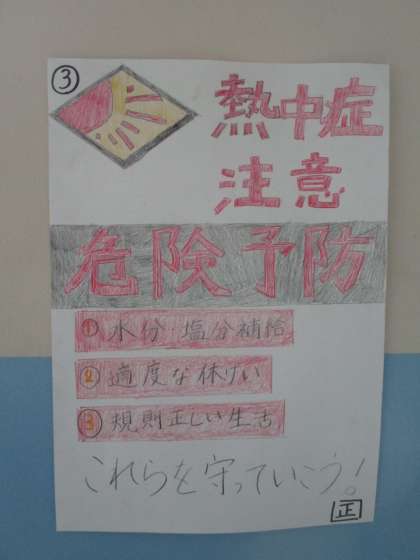 ③
熱中症
注意
危険予防
① 水分・塩分補給
② 適度な休けい
③ 規則正しい生活
これらを守っていこう!
正